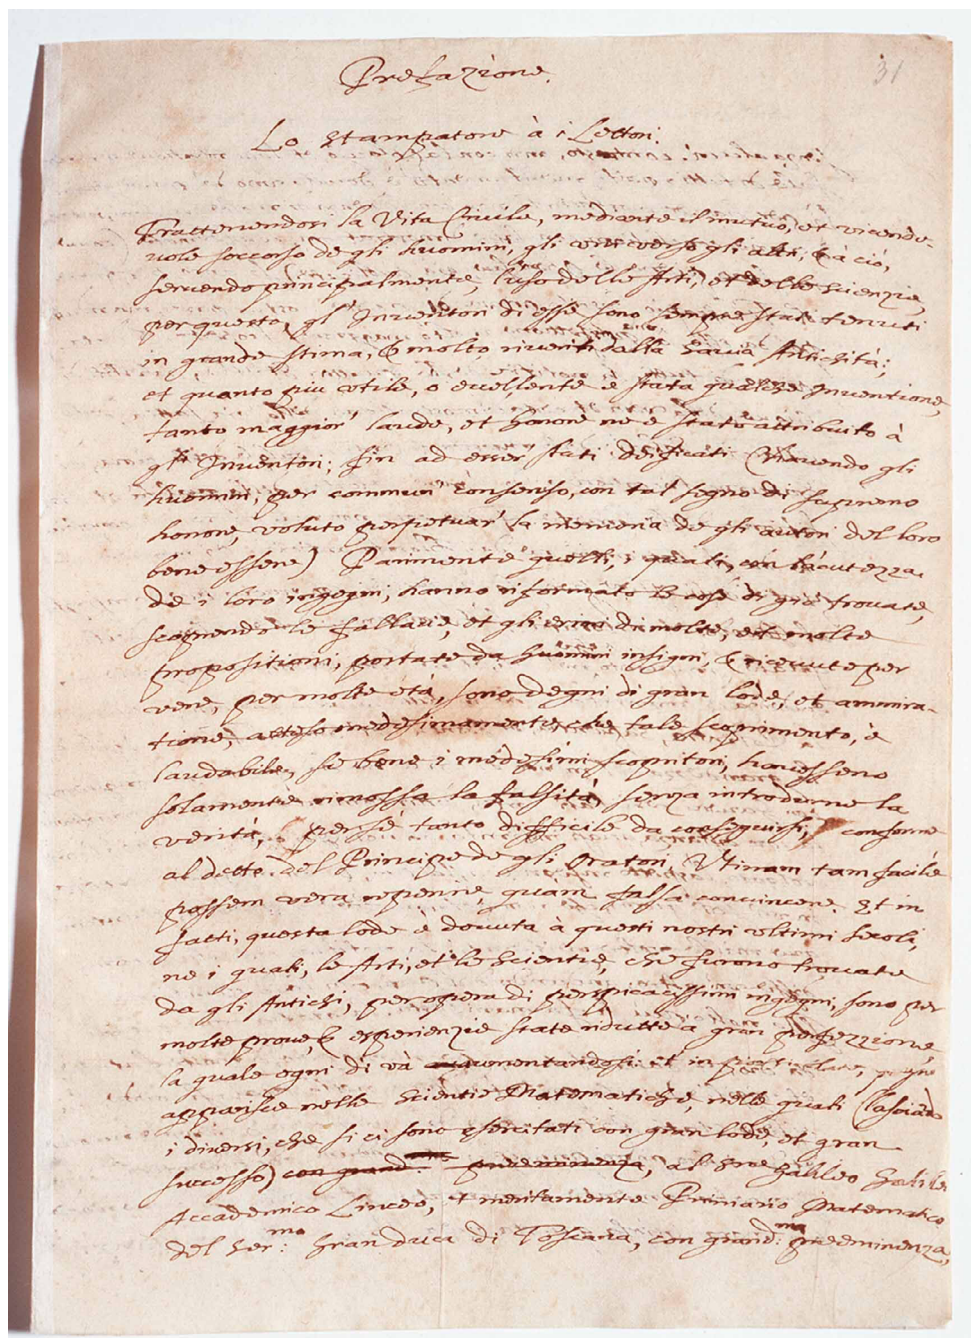 Prefazione.
31
Lo Stampatore à i Lettori.
Trattenendosi la Vita Civile, mediante il mutuo, et vicende-
vole soccorso de gli huomini, gli uni verso gli altri, & à ciò,
servendo principalmente, l'uso delle Arti, et delle scienzie,
per questo, gl' Inventori di esse sono sempre stati tenuti
in grande stima, & molto riveriti dalla savia Antichità;
et quanto piu utile, o eccellente è stata qualche Inventione,
tanto maggior laude, et honore ne è stato attribuito à
gli Inventori; fin ad esser stati deificati (havendo gli
huomini, per commun consenso, con tal segno di supremo
honore, voluto perpetuar la memoria de gli autori del loro
bene essere) Parimente quelli, i quali, con l'acutezza
de i loro ingegni, hanno riformato le cose di già trovate,
scoprendo le fallacie, et gli errori di molte, et molte
propositioni, portate da huomini insigni, & ricevute per
vere, per molte età, sono degni di gran lode, et ammira-
tione, atteso medesimamente, che tale scoprimento, è
laudabile, se bene i medesimi scopritori, havessero
solamente rimossa la falsità, senza introdurne la
verità, per sé tanto difficile da conseguirsi, conforme
al detto del Principe de gli Oratori, Utinam tam facile
possem vera reperire, quam falsa convincere. Et in
fatti, questa lode è dovuta à questi nostri ultimi secoli,
ne i quali, le Arti, et le Scientie, che furono trovate
da gli Antichi, per opera di perspicacissimi ingegni, sono per
molte prove, & esperienzie state ridutte à gran perfezzione,
la quale ogni dì và aumentandosi: et in particolare, questo
apparisce nelle Scientie Matematiche, nelle quali (lasciando
i diversi, che si ci sono esercitati con gran lode, et gran
successo) con grand. preeminenza, al Sre Galileo Galilei
Accademico Linceo, et meritamente Primario Matematico
del Ser.mo Gran duca di Toscana, con grand.ma preeminenza,